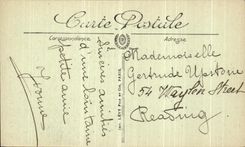 Carte Postale
Correspondance
Adresse
Sincères amitiés
d'une lointaine
petite amie
Yvonne
Mademoiselle
Gertrude Upstone
54 Waylen Street
Reading